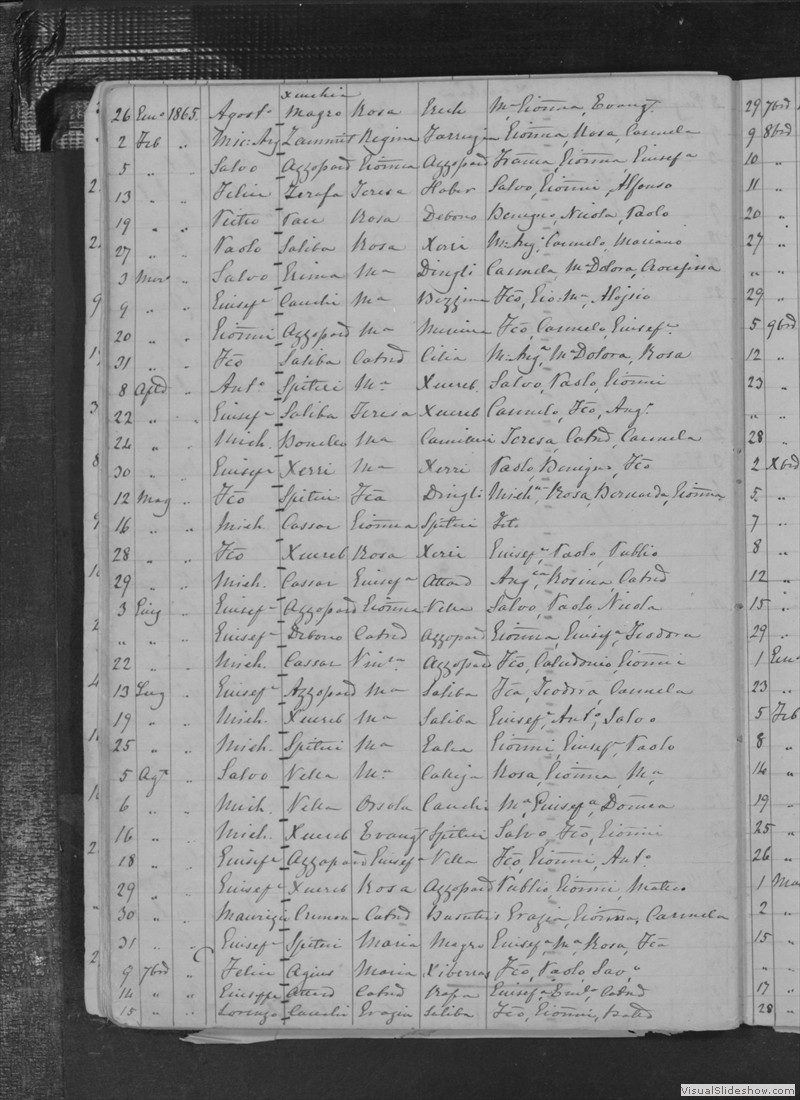 xuerchia
26 Enno 1865. Agosto Magro Rosa Erich Ma Gionna, Evangta
2 Feb " Mic: Ang Zammut Regina Farrugia Gionna Rosa, Carmela
5 " " Salvo Azzopard Gionna Azzopard Franca, Gionna, Giusefa
13 " " Felice Zerafa Teresa Haber Salvo, Gionni, Alfonso
19 " " Pietro Pace Rosa Debono Benigno, Nicola, Paolo
27 " " Paolo Saliba Rosa Xerri M: Ang, Carmelo, Mariano
3 Mar " Salvo Grima Ma Dingli Carmela, Ma Dolora, Crocefissa
9 " " Giusefe Cauchi Ma Fco, Gio: Ma, Aloisio
20 " " Gionni Azzopard Ma Fco, Carmelo, Giusefe
31 " " Fco Saliba Catnd Cilia M: Anga, Ma Dolora, Rosa
8 Apld " Anto Spiteri Ma Xuereb Salvo, Paolo, Gionni
22 " " Giusefe Saliba Teresa Xuereb Carmelo, Fco, Ango
24 " " Mich. Ma Camilleri Teresa, Catnd, Carmela
30 " " Giusefe Xerri Ma Xerri Paolo, Benigno, Fco
12 Mag " Fco Spiteri Fca Dingli Michna, Rosa, Bernarda, Gionna
16 " " Mich Cassar Gionna Spiteri
28 " " Fco Xuereb Rosa Xerri Giusefe, Paolo, Publio
29 " " Mich. Cassar Giusefa Attard Angca, Rosina, Catnd
3 Giug " Giusefe Azzopard Gionna Vella Salvo, Paolo, Nicola
" " " Giusefe Debono Catnd Azzopard Gionna, Giusefa, Teodora
22 " " Mich. Cassar Vinta Azzopard Fco, Calcedonio, Gionni
13 Lug " Giusefe Azzopard Ma Saliba Fca, Teodora, Carmela
19 " " Mich. Xuereb Ma Saliba Giusefe, Anto, Salvo
25 " " Mich. Spiteri Ma Galea Gionni, Giusefe, Paolo
5 Agto " Salvo Vella Ma Calleja Rosa, Gionna, Ma
6 " " Mich. Vella Orsola Cauchi Ma, Giusefa, Domca
16 " " Mich. Xuereb Evangta Spiteri Salvo, Fco, Gionni
18 " " Giusefe Azzopard Giusefa Vella Fco, Gionni, Anto
29 " " Giusefe Xuereb Rosa Azzopard Publio Gionni, Matteo
30 " " Maurizio Cremona Catnd Busuttil Grazia, Gionna, Carmela
31 " " Giusefe Spiteri Maria Magro Giusefa, Ma, Rosa, Fca
9 7brd " Felice Agius Maria Xiberras Fco, Paolo, Savo
14 " " Giuseppe Attard Catnd Giusefa, Catnd
15 " " Lorenzo Cauchi Grazia Saliba Fco, Gionni,
29 7brd
9 8brd
10 "
11 "
20 "
27 "
" "
29 "
5 9brd
12 "
23 "
" "
28 "
2 Xbrd
5 "
7 "
8 "
12 "
15 "
29 "
1 Enn
23 "
5 Feb
8 "
14 "
19 "
25 "
26 "
1 Ma
2 "
15 "
" "
17 "
28 "
VisualSlideshow.com